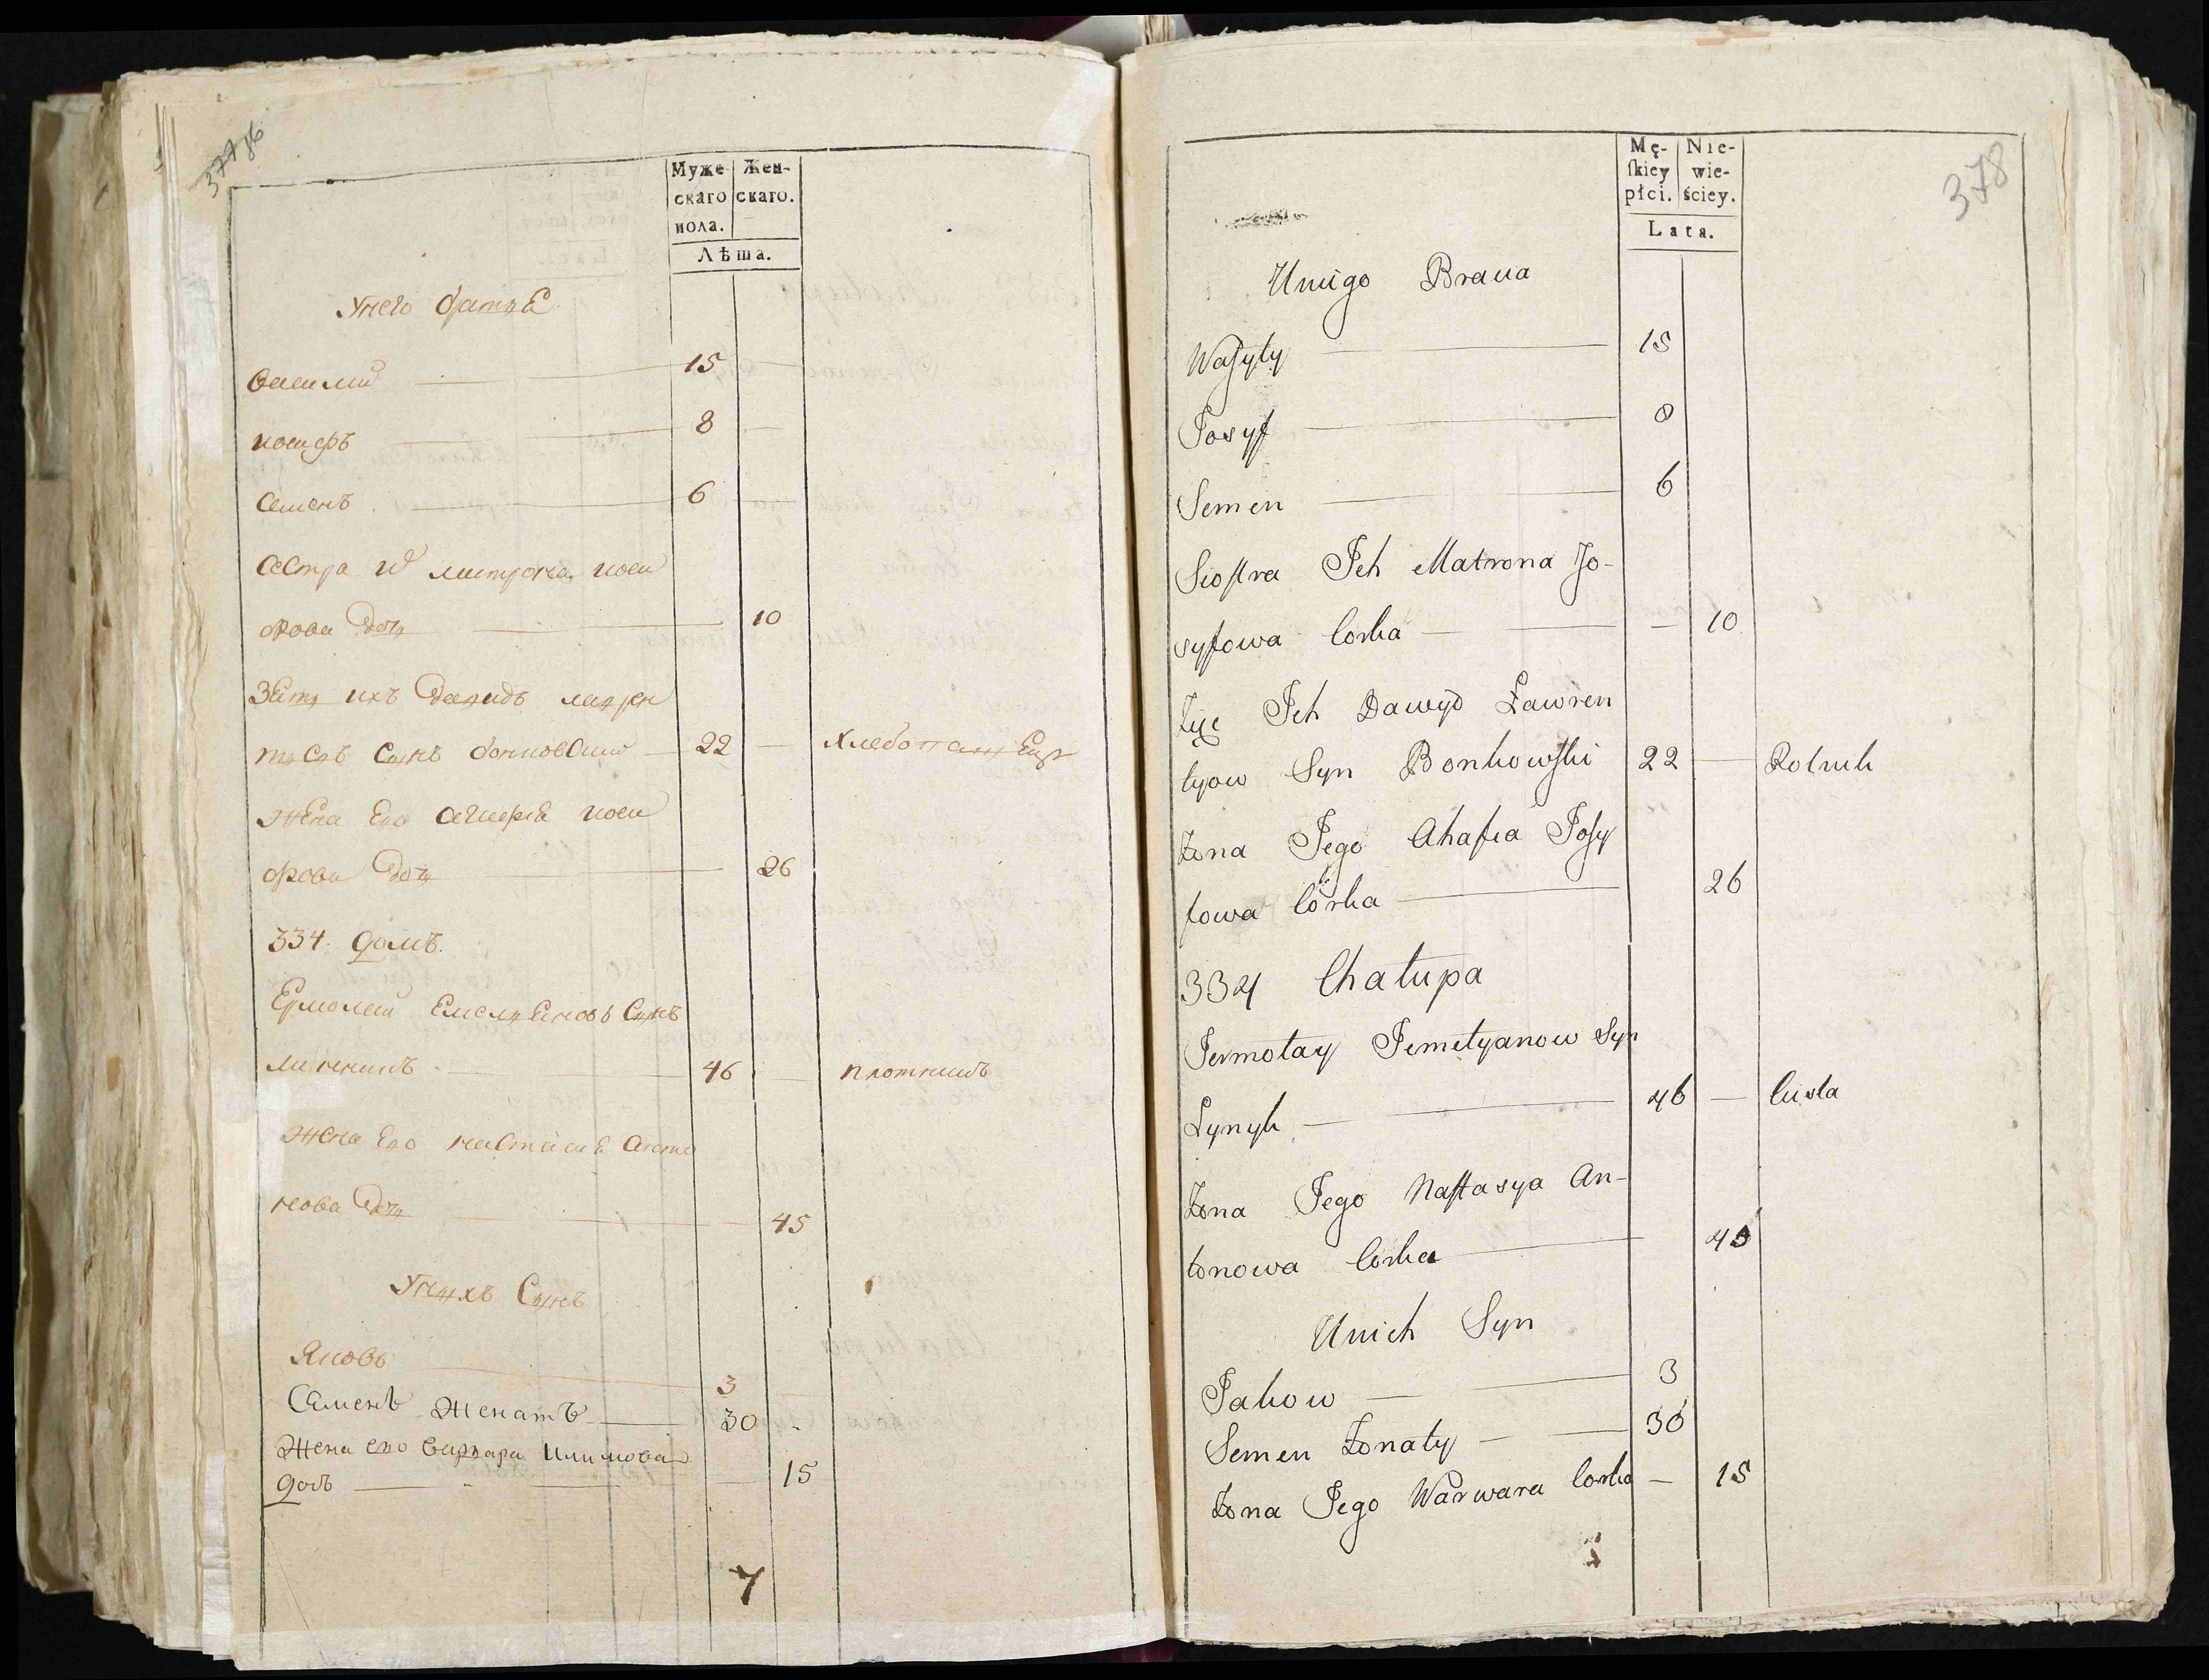 377 об
Муже-
скаго
пола.
Жен-
скаго.
Лѣта.
У него братья
Василий 15
Иосифъ 8
Семенъ 6
Сестра их Матрона Иоси
фова дочь 10
Зять ихъ Давидъ Лаврен
тьевъ сынъ Бонковский 22 Хлебопашец
Жена его Агафия Иоси
фова дочь 26
334. домъ.
Ермолай Емельяновъ сынъ
46 плотникъ
Жена его Настасия Анто
нова дочь 45
У нихъ сынъ
Яковъ 3
Семенъ женатъ 30
Жена его Варвара Климова
дочь 15
7
378
Mę-
ſkiey
płci.
Nie-
wie-
ściey.
Lata.
Unigo Braua
Wasyly 15
Josyf 8
Semen 6
Siostra Jch Matrona Jo-
syfowa Corka 10
Jch Dawyd Lawren
tyow Syn Bonkowski 22 Rolnik
Żona Jego Ahafia Josy
fowa Córka 26
334 Chalupa
Jermolay Jemelyanow Syn
Lynyk 46 Cieśla
Żona Jego Nastasya An-
tonowa Corka 45
Unich Syn
Jakow 3
Semen Żonaty 30
Żona Jego Warwara Corka 15